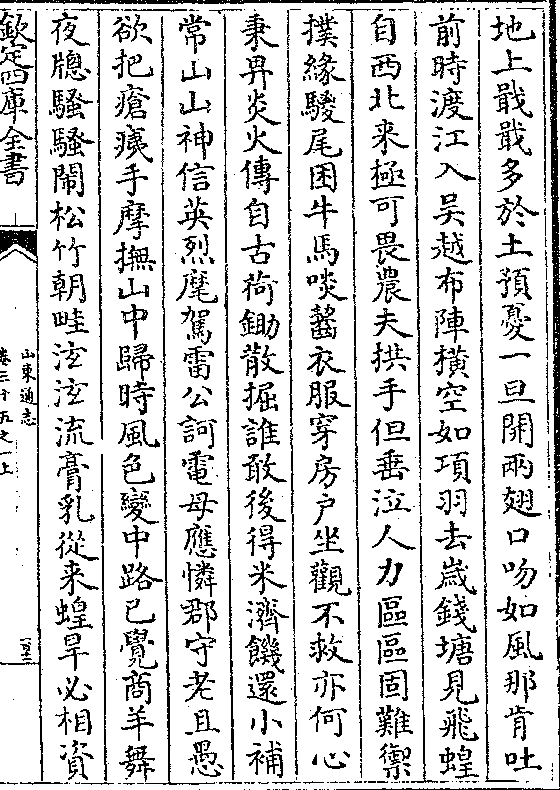 地上戢戢多於土預憂一旦開兩翅口吻如風那肯吐
前時渡江入吴越布陣横空如項羽去歳錢塘見飛蝗
自西北来極可畏農夫拱手但垂泣人力區區固難禦
撲緣騣尾困牛馬啖齧衣服穿房户坐觀不救亦何心
秉畀炎火傳自古荷鋤散掘誰敢後得米濟饑還小補
常山山神信英烈麾駕雷公訶電母應憐郡守老且愚
欲把瘡痍手摩撫山中歸時風色變中路已覺商羊舞
夜牕騷騷鬧松竹朝畦泫泫流膏乳從来蝗旱必相資
欽定四庫全書
山東通志
卷三十五之一上